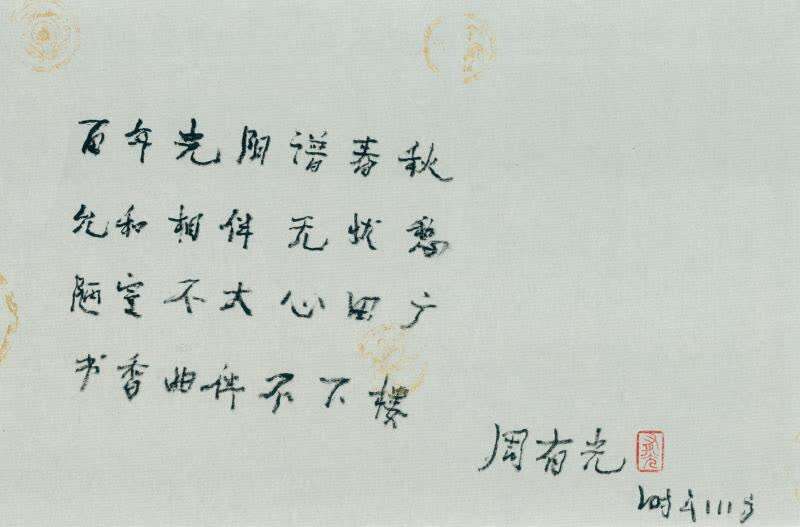 百年光阴谱春秋
允和相伴无忧愁
陋室不大心田广
书香曲伴不下楼
周有光
时年111岁